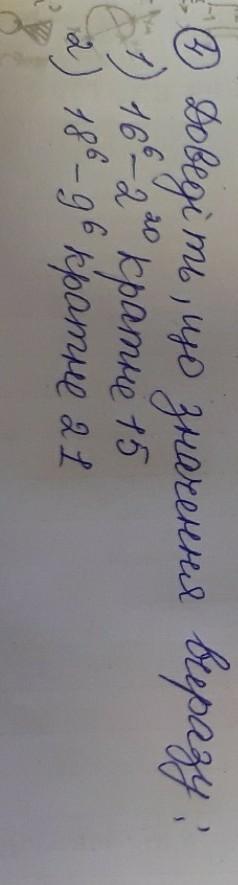 ④ Доведіть, що значення виразу:
1) 16⁶ - 2²⁰ кратне 15
2) 18⁶ - 9⁶ кратне 21